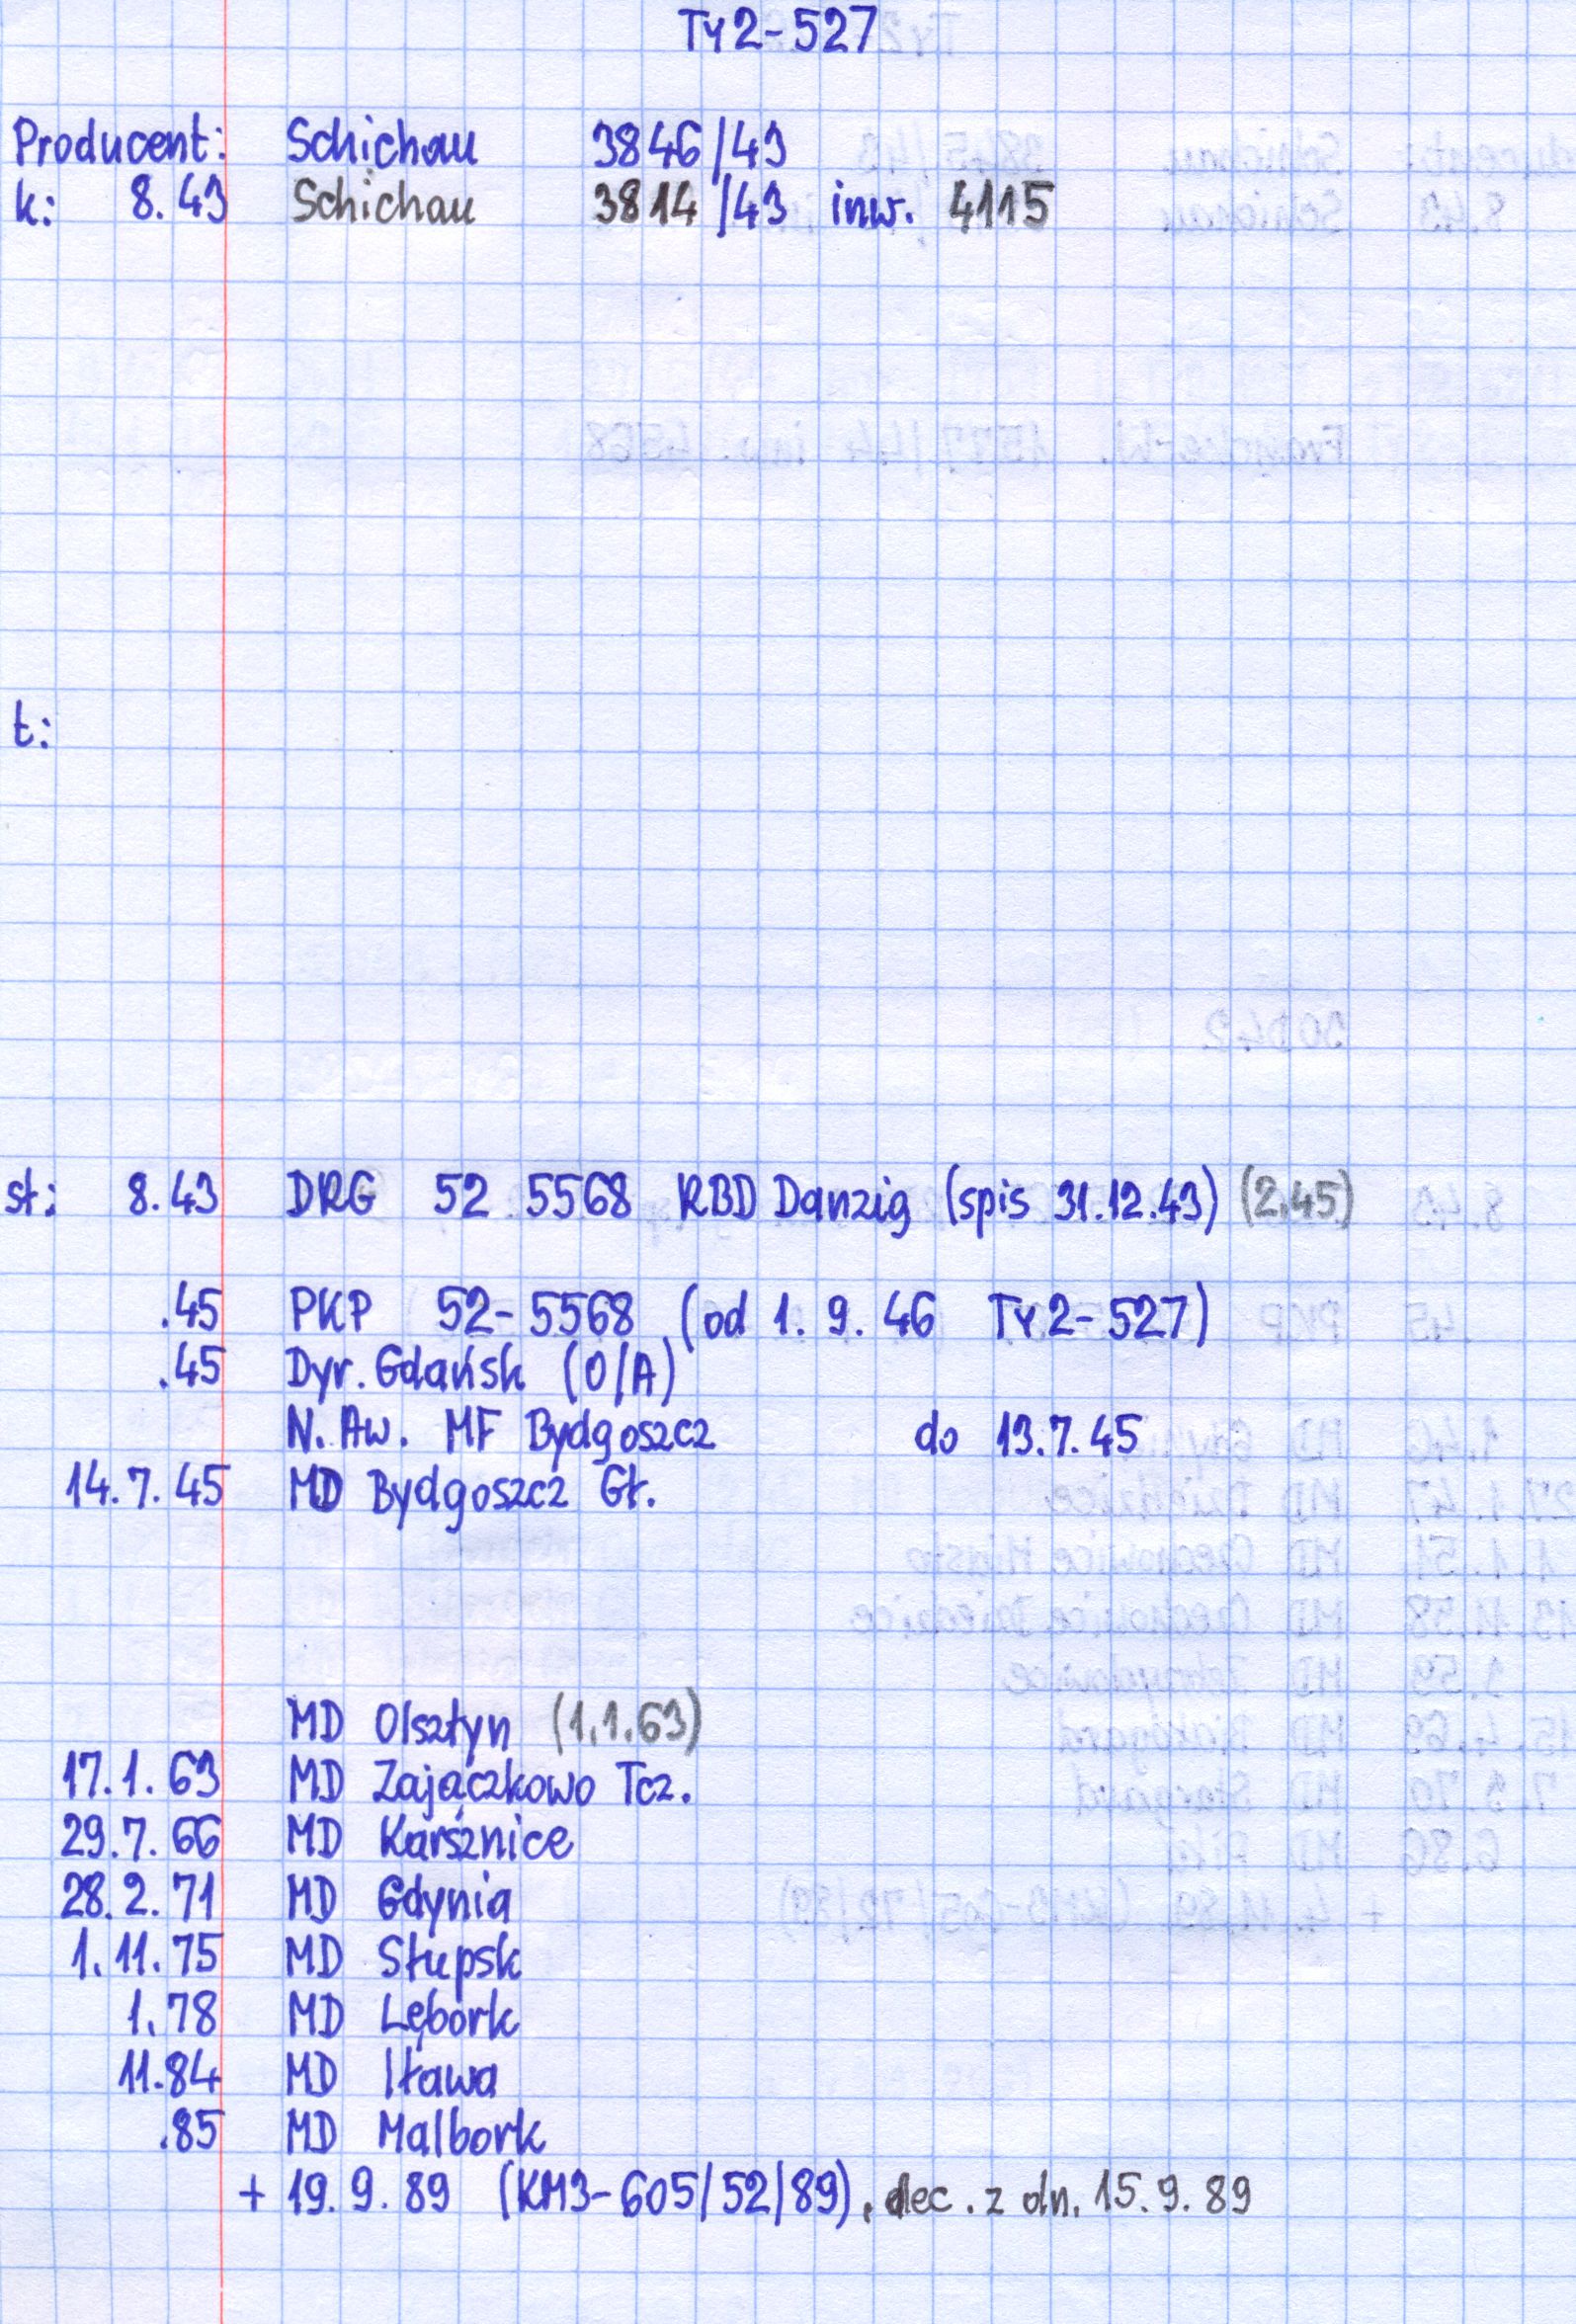 Ty2-527
Producent: Schichau 3846/43
k: 8.43 Schichau 3814/43 inw. 4115
t:
st: 8.43 DRG 52 5568 RBD Danzig (spis 31.12.43) (2.45)
.45 PKP 52-5568 (od 1. 9. 46 Ty2-527)
.45 Dyr. Gdańsk (O/A)
N. Aw. MF Bydgoszcz do 13.7.45
14.7.45 MD Bydgoszcz Gł.
MD Olsztyn (1.1.63)
17.1.63 MD Zajączkowo Tcz.
29.7.66 MD Karsznice
28.2.71 MD Gdynia
1.11.75 MD Słupsk
1.78 MD Lębork
11.84 MD Iława
.85 MD Malbork
+ 19.9.89 (KM3-605/52/89), dec. z dn. 15.9.89